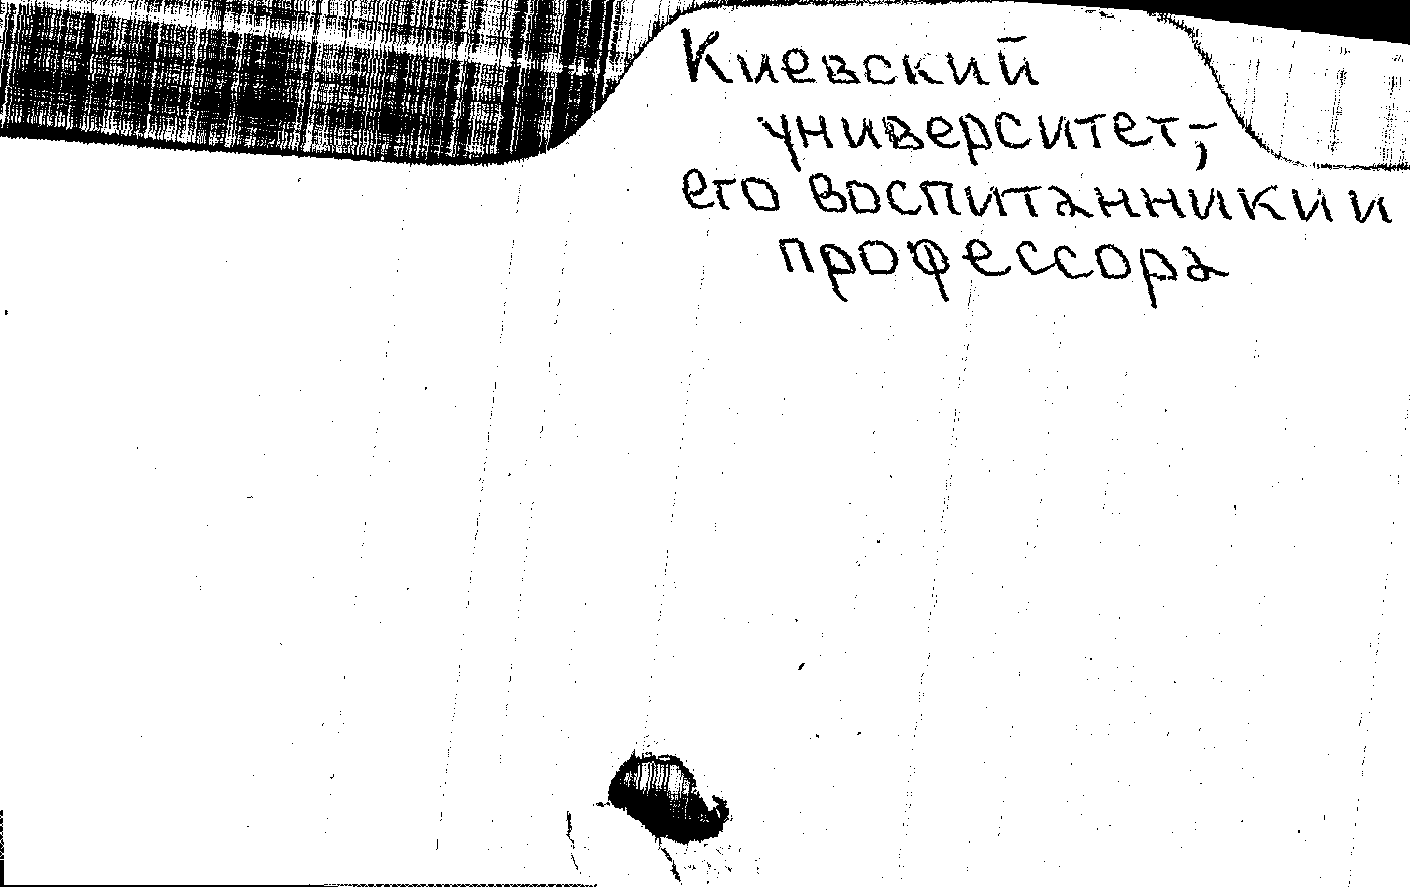 Киевский
университет,-
его воспитанники и
профессора